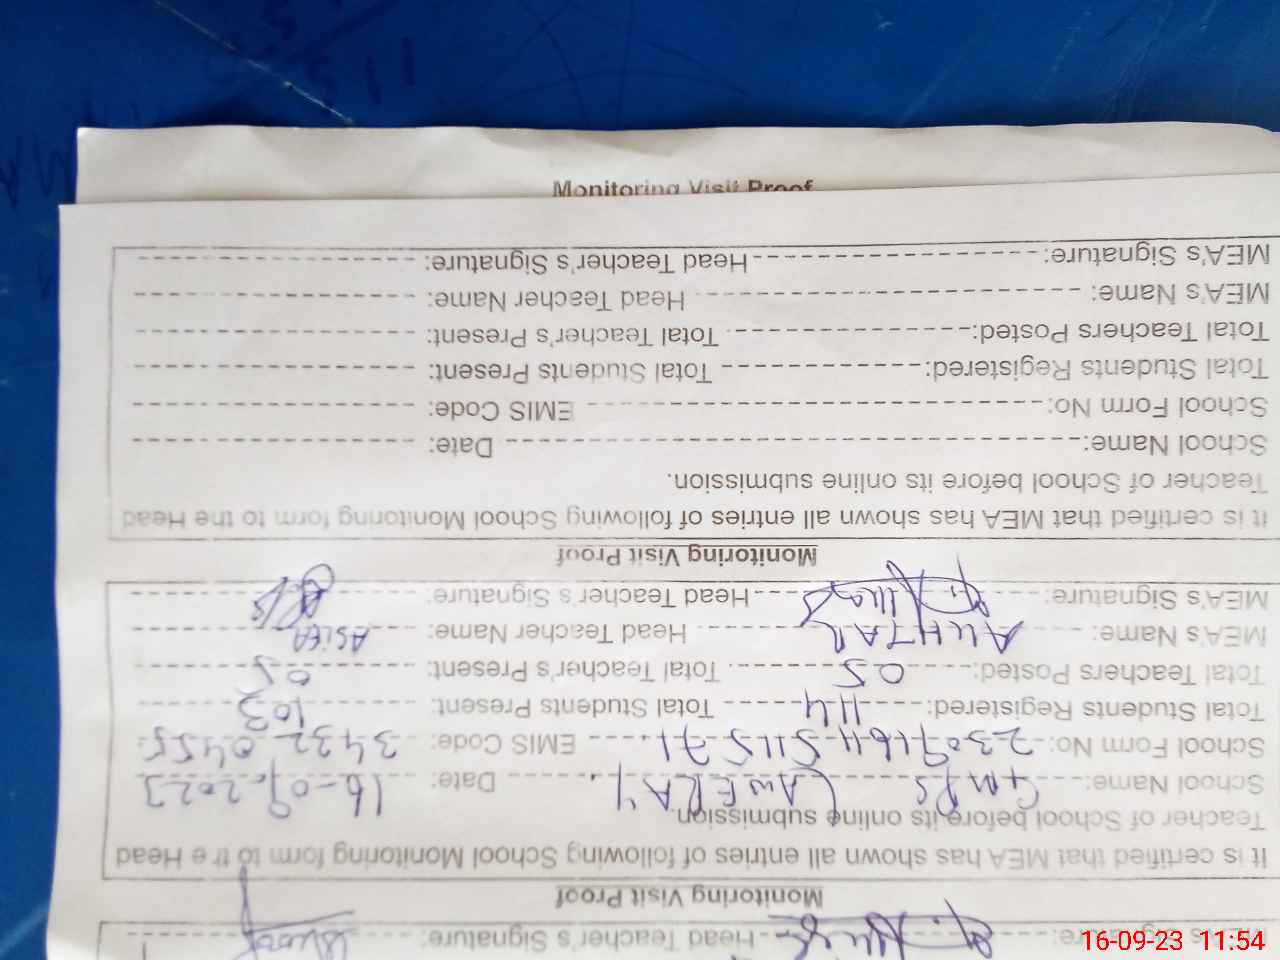 MEA's Signature: Head Teacher's Signature:
Monitoring Visit Proof
It is certified that MEA has shown all entries of following School Monitoring form to the Head
Teacher of School before its online submission.
School Name: GMPS LAWERAY Date: 16-09-2023
School Form No: EMIS Code: 34320455
Total Students Registered: 114 Total Students Present: 103
Total Teachers Posted: 05 Total Teacher's Present: 05
MEA's Name: AKHTAR Head Teacher Name: ASIFA
MEA's Signature: Head Teacher's Signature:
Monitoring Visit Proof
It is certified that MEA has shown all entries of following School Monitoring form to the Head
Teacher of School before its online submission.
School Name: Date:
School Form No: EMIS Code:
Total Students Registered: Total Students Present:
Total Teachers Posted: Total Teacher's Present:
MEA's Name: Head Teacher Name:
MEA's Signature: Head Teacher's Signature:
Monitoring Visit Proof
16-09-23 11:54